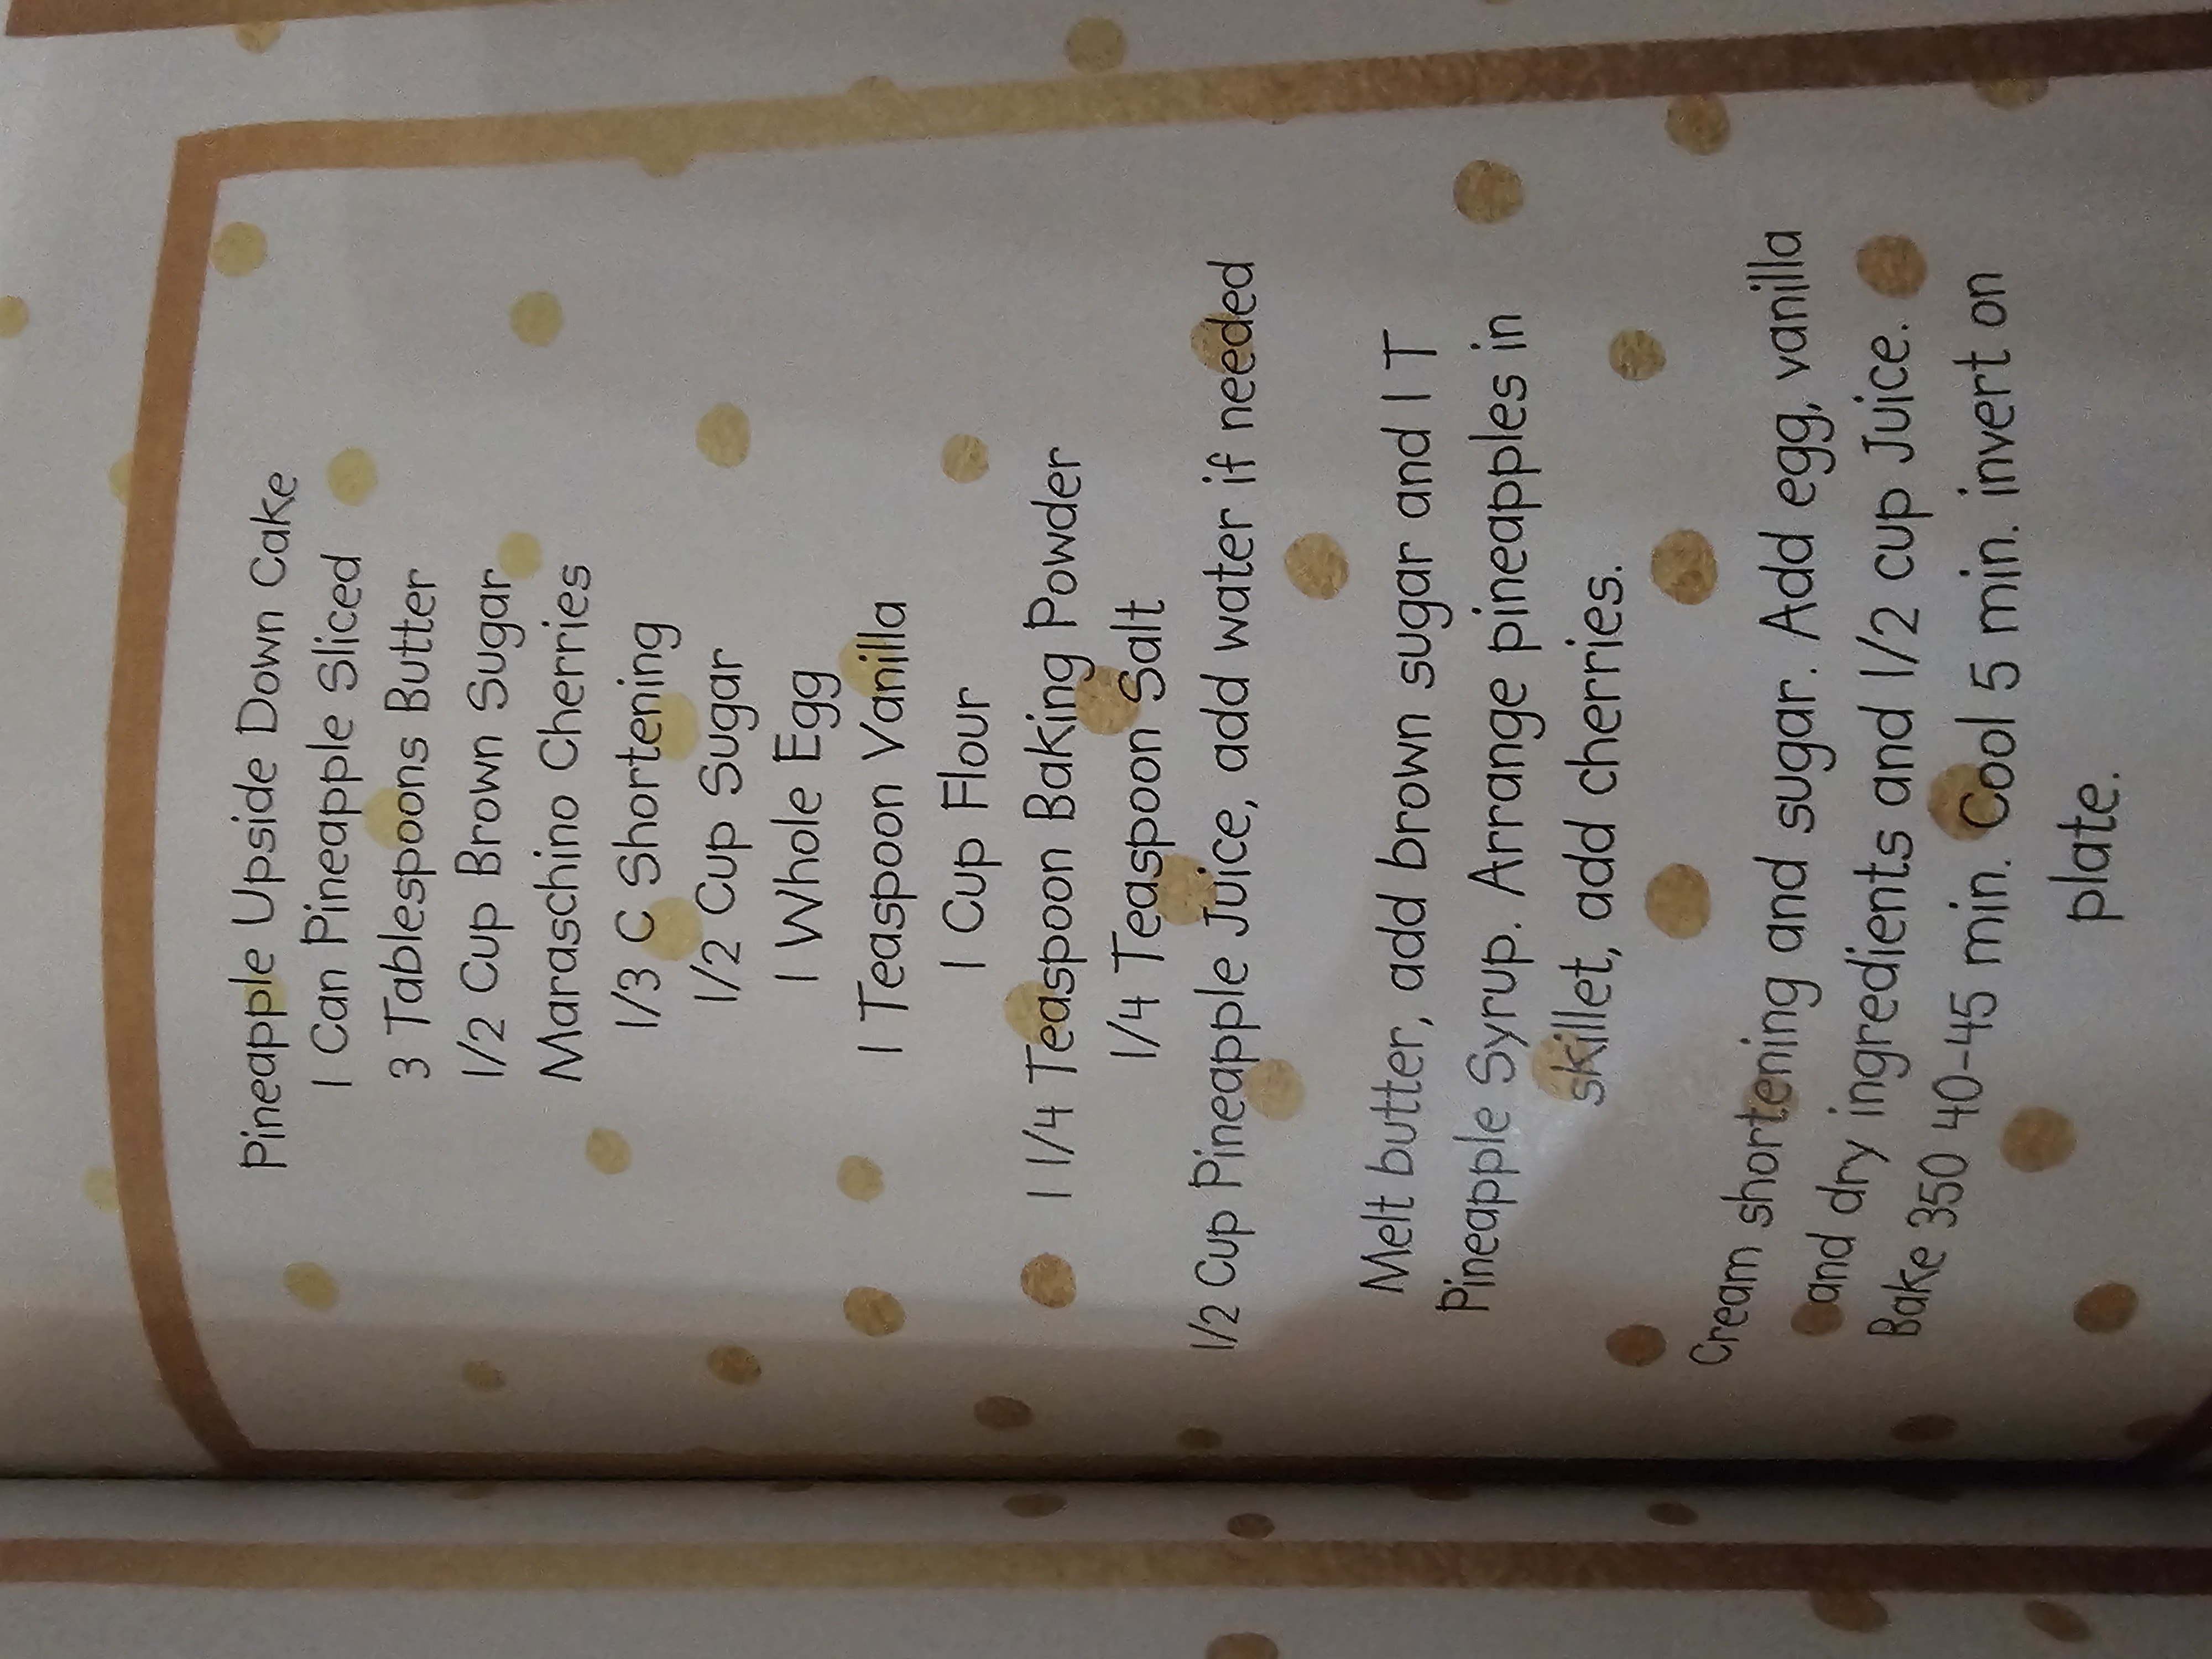 Pineapple Upside Down Cake
1 Can Pineapple Sliced
3 Tablespoons Butter
1/2 Cup Brown Sugar
Maraschino Cherries
1/3 C Shortening
1/2 Cup Sugar
1 Whole Egg
1 Teaspoon Vanilla
1 Cup Flour
1 1/4 Teaspoon Baking Powder
1/4 Teaspoon Salt
1/2 Cup Pineapple Juice, add water if needed
Melt butter, add brown sugar and 1 T
Pineapple Syrup. Arrange pineapples in
skillet, add cherries.
Cream shortening and sugar. Add egg, vanilla
and dry ingredients and 1/2 cup Juice.
Bake 350 40-45 min. Cool 5 min. invert on
plate.